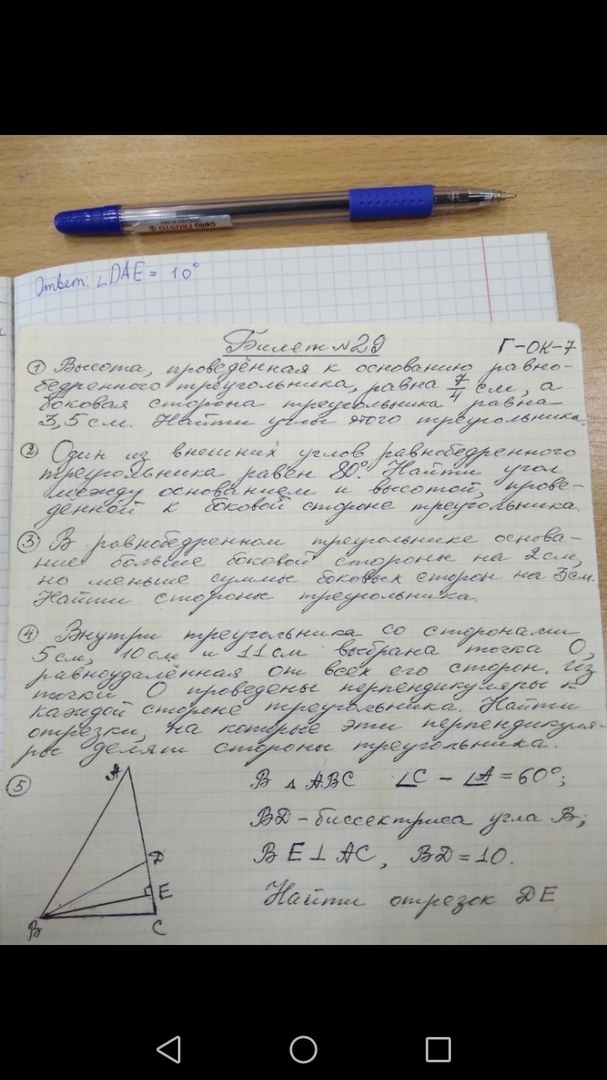 Ответ: ∠DAE = 10°
Билет №29
Г-ОК-7
① Высота, проведённая к основанию равно-
бедренного треугольника, равна 7/4 см, а
боковая сторона треугольника равна
3,5 см. Найти углы этого треугольника.
② Один из внешних углов равнобедренного
треугольника равен 80°. Найти угол
между основанием и высотой, прове-
дённой к боковой стороне треугольника.
③ В равнобедренном треугольнике основа-
ние больше боковой стороны на 2 см,
но меньше суммы боковых сторон на 3 см.
Найти стороны треугольника.
④ Внутри треугольника со сторонами
5 см, 10 см и 11 см выбрана точка О,
равноудалённая от всех его сторон. Из
точки О проведены перпендикуляры к
каждой стороне треугольника. Найти
отрезки, на которые эти перпендикуля-
ры делят стороны треугольника.
⑤
A
D
E
B
C
В △ ABC ∠C - ∠A = 60°;
BD - биссектриса угла B;
BE ⊥ AC, BD = 10.
Найти отрезок DE
cello PRONTO